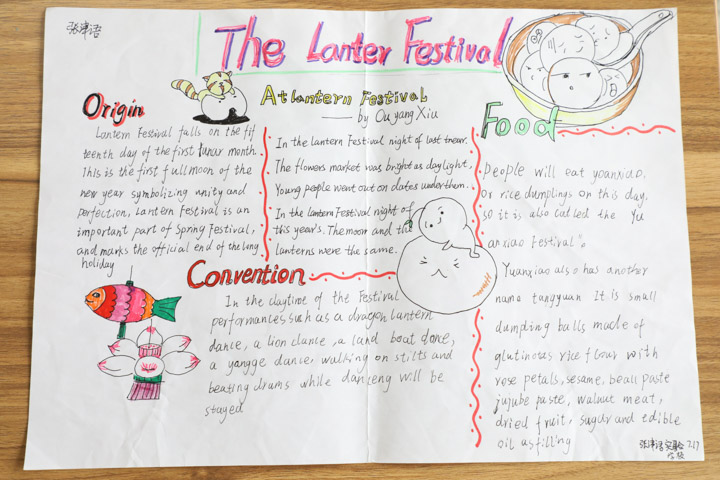 张津语
The Lanter Festival
Origin
Lantern Festival falls on the fif
teenth day of the first lunar month.
This is the first full moon of the
new year symbolizing unity and
perfection, Lantern Festival is an
important part of Spring Festival,
and marks the official end of the long
holiday
At lantern Festival
—— by Ou yang Xiu
In the lantern Festival night of last
The flowers market was bright as daylight,
Young people went out on dates under them.
In the lantern Festival night of
this year's. The moon and the
lanterns were the same.
Food
People will eat yoanxiao.
Or rice dumplings on this day,
so it is also called the Yu
anxiao Festival".
Yuanxiao also has another
name tangyuan It is small
dumpling balls made of
glutinous rice flour with
rose petals, sesame, bean paste
jujube paste, walnut meat,
dried fruit, sugar and edible
oil as filling
Convention
In the daytime of the Festival
performances such as a dragon lantern
dance, a lion dance, a land boat done,
a yangge dance, walking on stilts and
beating drums while danceng will be
stayed
张津语 实验 7.17
学校